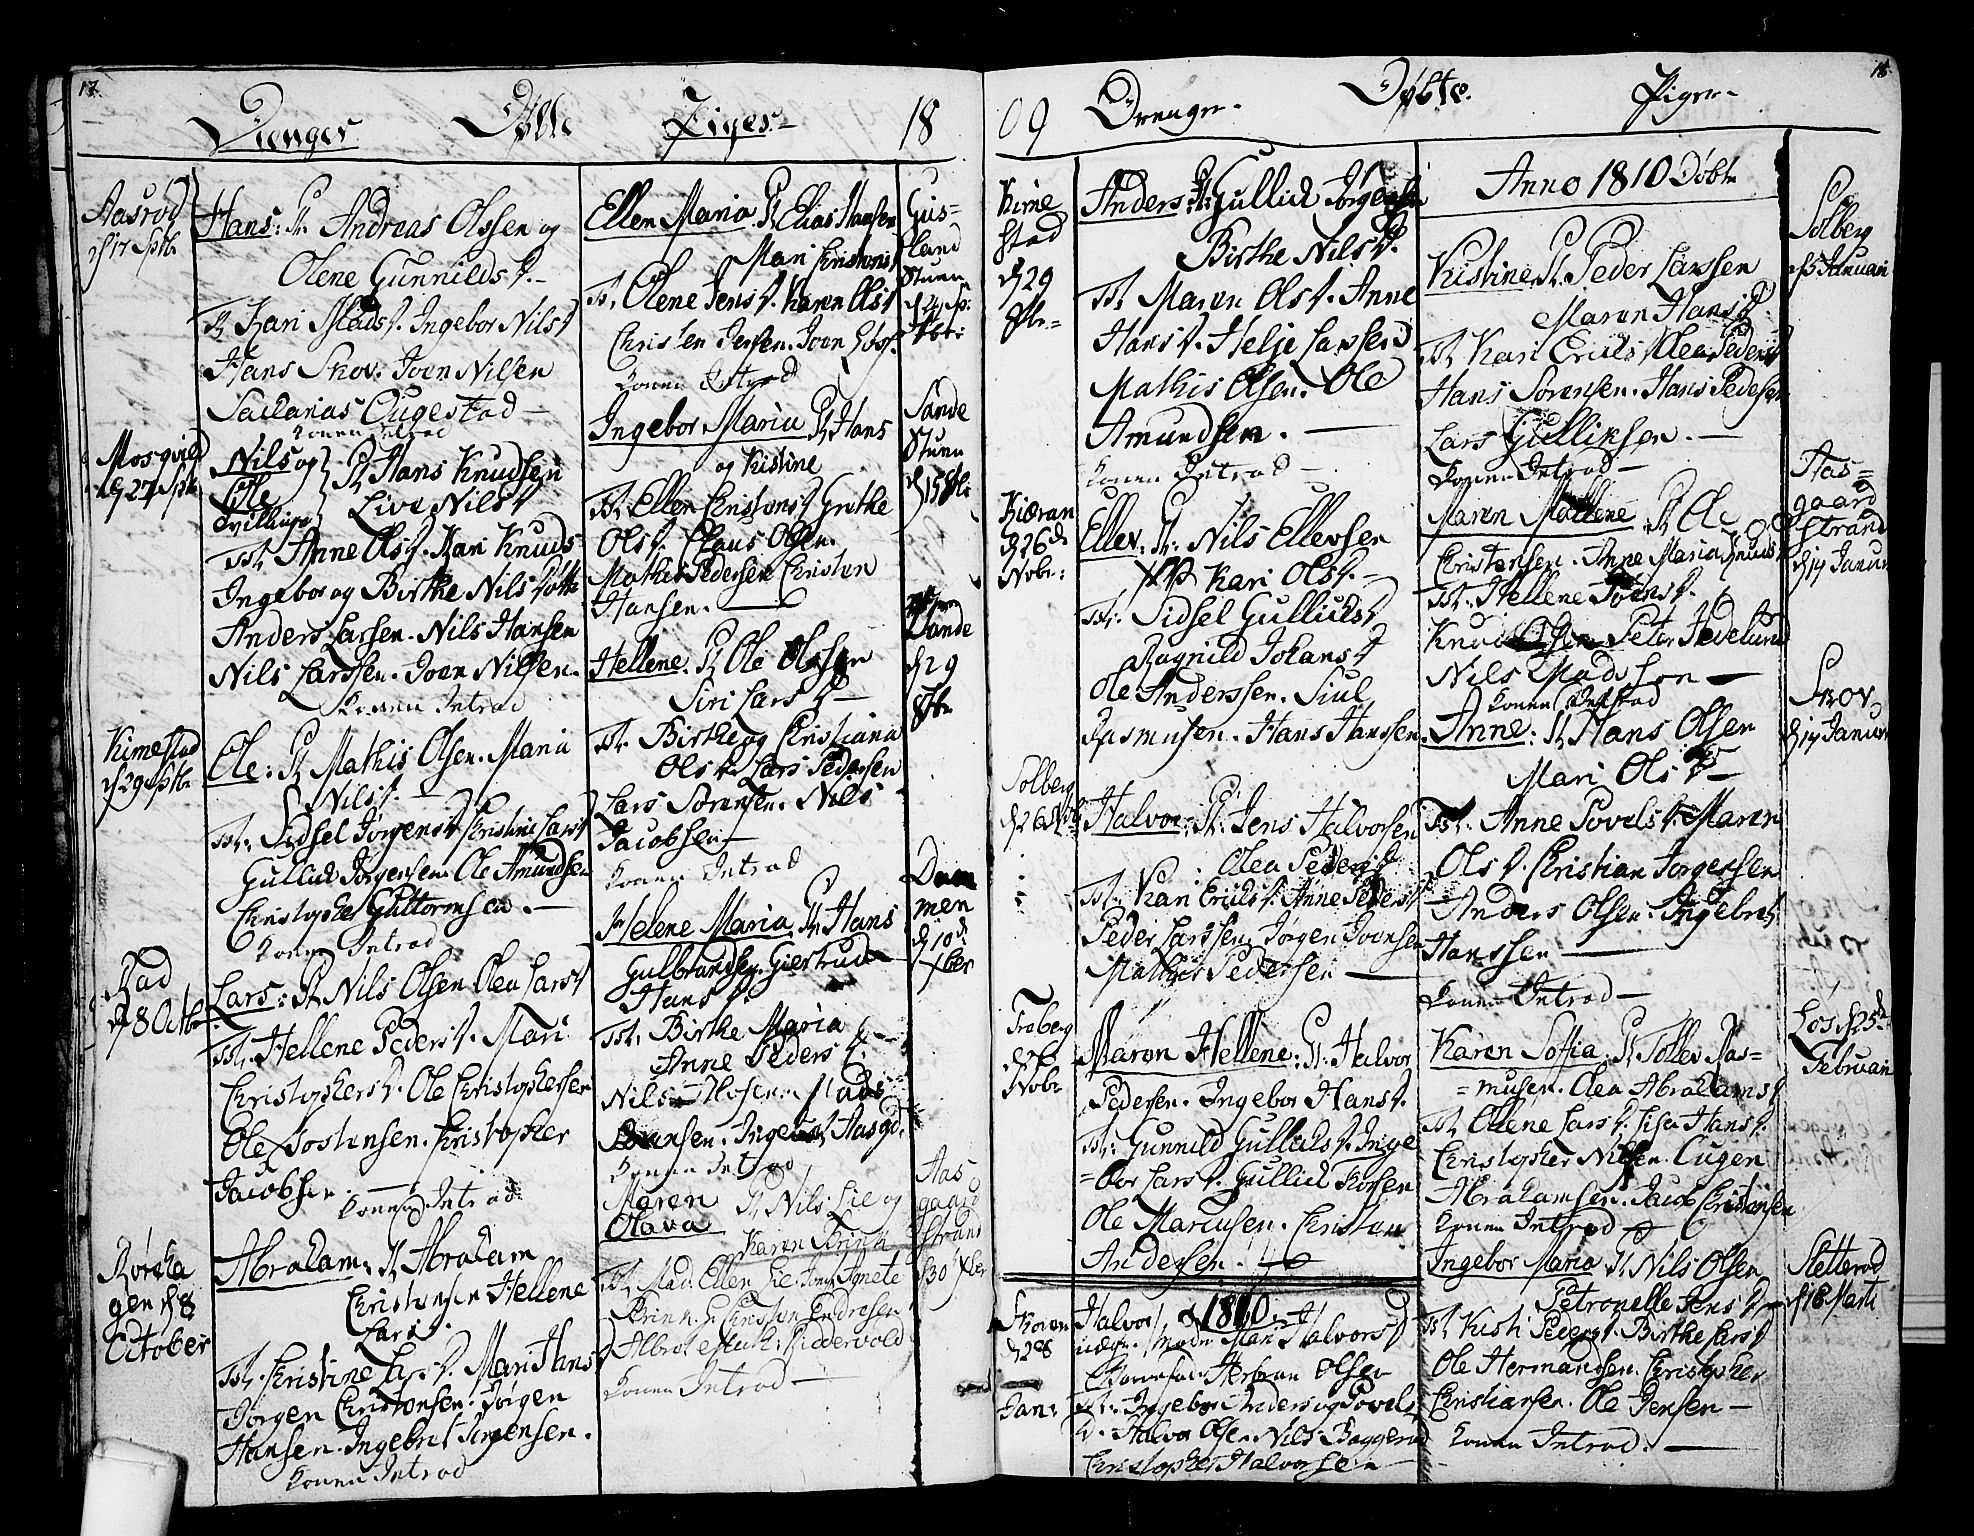 17.
Drenger Døbte Piger 18
Aasrød
d 17 Sptb
Hans: P. Andreas Olssen og
Olene Gunnildsd.
Kari Madsd. Ingebor Nilsd
Hans Skov. Joen Nilsen
Sackarias Eugestad
Konen Introd
Mosqvild
d 27 Sptb
Nils og
Tvillinger
P. Hans Knudsen
Live Nilsd
Tst. Anne Olsd. Kari Knuds
Ingebor og Birthe Nilsdøttr
Anders Larsen. Nils Hansen
Nils Larssen. Joen Nilsen.
Konen Introd
Kimestad
d 29 Sptb
Ole: P. Mathis Olsen. Maria
Nilsd.
Tst. Sidsel Jørgensd. Kristine Larsd
Gullick Jørgensen. Ole Amundsen
Christopher Guttormsen.
Konen Introd
Rød
d 8 Octb
Lars: P. Nils Olsen Olea Larsd
Tst. Hellene Pedersd. Mari
Christophersd. Ole Christophersen
Ole Jostensen. Christopher
Jacobsen.
Konen Introd
Rørcha
gen d 8
October
Abraham. P. Abraham
Christensen Hellene
Larsd.
Tst. Christine Larsd. Mari Hansd
Jørgen Christensen. Jørgen
Hansen. Ingebret Jørgensen.
Konen Introd
Ellen Maria P. Elias Hansen
Mari Christensd
Tst. Olene Jensd. Karen Olsd
Christen Jensen. Joen
Konen Introd
Gus-
land
Stuen
d 24 Sp.
tbr:
Ingebor Maria P. Hans
og Kistine
Tst. Ellen Christensd Grethe
Olsd. Claus Olsen.
Mathis Pedersen Christen
Hansen.
Sande
Stuen
d 15 8br
Hellene. P. Ole Olssen
Siri Larsd
Tst. Birthe og Christiana
Olsd. Lars Pedersen
Lars Sørensen. Nils
Jacobsen
Konen Introd
Sande
d 29
8br
Helene Maria. P. Hans
Gulbrandsen. Giertrud
Hansd.
Tst. Birthe Maria
Anne Pedersd.
Nils Olsen Mads
Sørensen. Ingebret Aasgd.
Konen Introd
Dam
men
d 10 d
Xber
Maren
Olava
P. Nils Lie og
Karen Brink
Tst. Mad. Ellen Lie. Agnete
Brink.
Konen Introd
Aas-
gaard
strand
d 30 Xber
18.
09 Drenger. Døbte. Piger
Kime
stad
d 29
8br
Anders: P. Gullick Jørgensen
Birthe Nilsd.
Tst. Maren Olsd. Anne
Hansd. Helje Larssen
Mathis Olsen. Ole
Amundsen.
Konen Introd
Kiæran
d 26 de
Nobr:
Ellev: P. Nils Ellevsen
Kari Olsd.
Tst: Sidsel Gullicksd
Ragnild Johansd
Ole Anderssen. Siul
Rasmusen. Hans Hanssen
Solberg
Halvor: P. Jens Halvorsen
Olea Pedersd
Tst. Kari Ericksd. Anne Pedersd
Peder Larssen. Jørgen Joensen
Mathis Pedersen
Froberg
Nobr
Maren Hellene: P. Halvor
Pedersen. Ingebor Hansd.
Tst: Gunnild Gullicksd. Inge
-bor Larsd. Gullick
Ole Marcusen. Christen
Andersen.
1810.
d 28
Jan:
Halvor,
uægte, Moder Mari Halvorsd
Barnefader Herman Olsen
Tst. Ingebor Anders og Povels
d. Halvor Olsen Nils Baggerød
Christopher Halvorsen
Anno 1810 Døbte
Kistine P. Peder Larssen
Maren Hansd
Tst. Kari Ericksd Olea Pedersd
Hans Sørensen. Hans Pedersen
Lars Gulliksen.
Konen Introd
Solberg
d 5 Januari
Maren Mallene P. Ole
Christensen. Anne Maria Knudsd
Tst. Hellene Joensd.
Knud Olsen Peter Hedelund
Nils Madssen
Konen Introd
Aas-
gaard
strand
d 14 Januri
Anne: P. Hans Olsen
Mari Olsd
Tst. Anne Povelsd. Maren
Olsd. Christian Jørgessen
Anders Olsen. Ingebret
Hanssen
Konen Introd
Skov
d 14 Januri
Karen Sofia P. Tollev Ras-
-musen. Olea Abrahamsd
Tst. Ellene Larsd. Lisa Hansd.
Christopher Nilsen. Eugen
Abrahamsen. Jacob Christensen
Konen Introd
Løs d 25 d
Februari
Ingebor Maria P. Nils Olsen
Petronelle Jensd
Tst. Kisti Pedersd. Birthe Larsd
Ole Hermandsen. Christopher
Christiansen. Ole Jensen
Konen Introd.
Sletterød
d 18 Marti